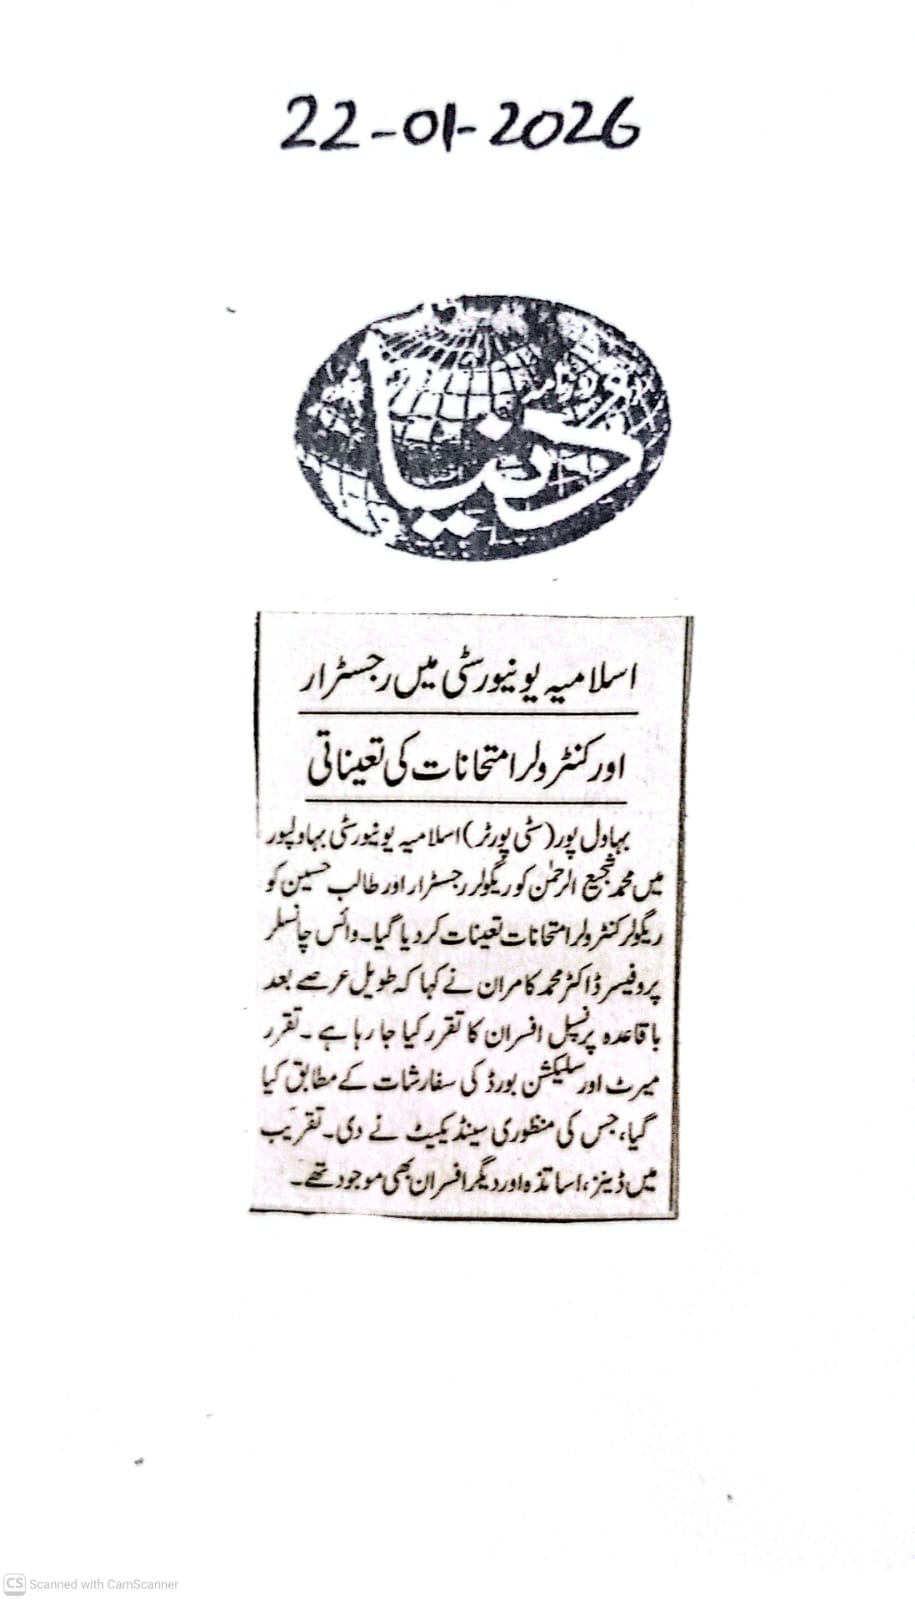 22-01-2026
روزنامہ
دنیا
اسلامیہ یونیورسٹی میں رجسٹرار
اور کنٹرولر امتحانات کی تعیناتی
بہاول پور (سٹی رپورٹر) اسلامیہ یونیورسٹی بہاولپور
میں محمد شجیع الرحمٰن کو ریگولر رجسٹرار اور طالب حسین کو
ریگولر کنٹرولر امتحانات تعینات کر دیا گیا۔ وائس چانسلر
پروفیسر ڈاکٹر محمد کامران نے کہا کہ طویل عرصے بعد
باقاعدہ پرنسپل افسران کا تقرر کیا جا رہا ہے۔ تقرر
میرٹ اور سلیکشن بورڈ کی سفارشات کے مطابق کیا
گیا، جس کی منظوری سینڈیکیٹ نے دی۔ تقریب
میں ڈینز، اساتذہ اور دیگر افسران بھی موجود تھے۔
CS Scanned with CamScanner